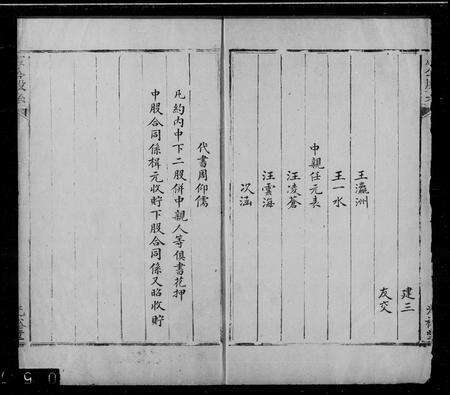 建三
友交
王瀛洲
王一水
中親任元長
汪淩蒼
汪雲海
次涵
代書周仰儒
凡約內中下二股併中親人等俱書花押
中股合同係楫元收貯下股合同係又昭收貯